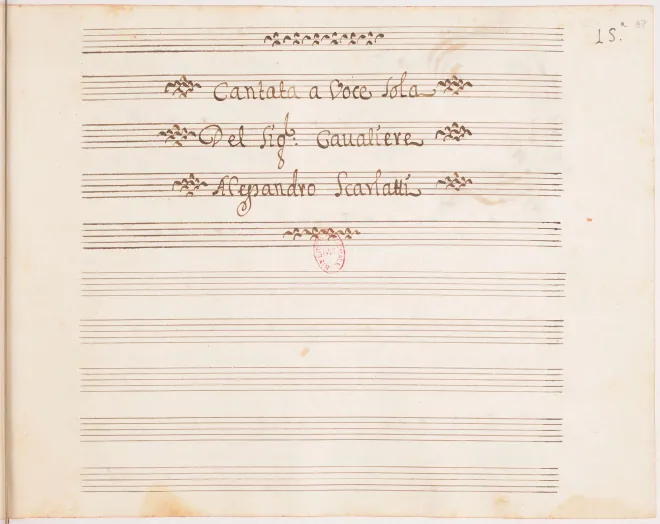 15.ª
Cantata a Voce Sola
Del Sig.r Caualiere
Alessandro Scarlatti